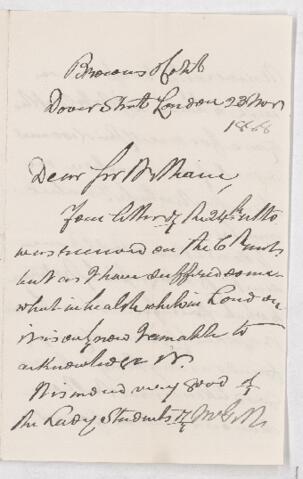 Browns Hotel
Dover Street London 23 Nov
1868
Dear Sir William,
Your letter of the 24th ulto
was received on the 6th
but as I have suffered some
what in health while in London
it is only now I am able to
acknowledge it.
It is indeed very good of
the Lady Students of McGill